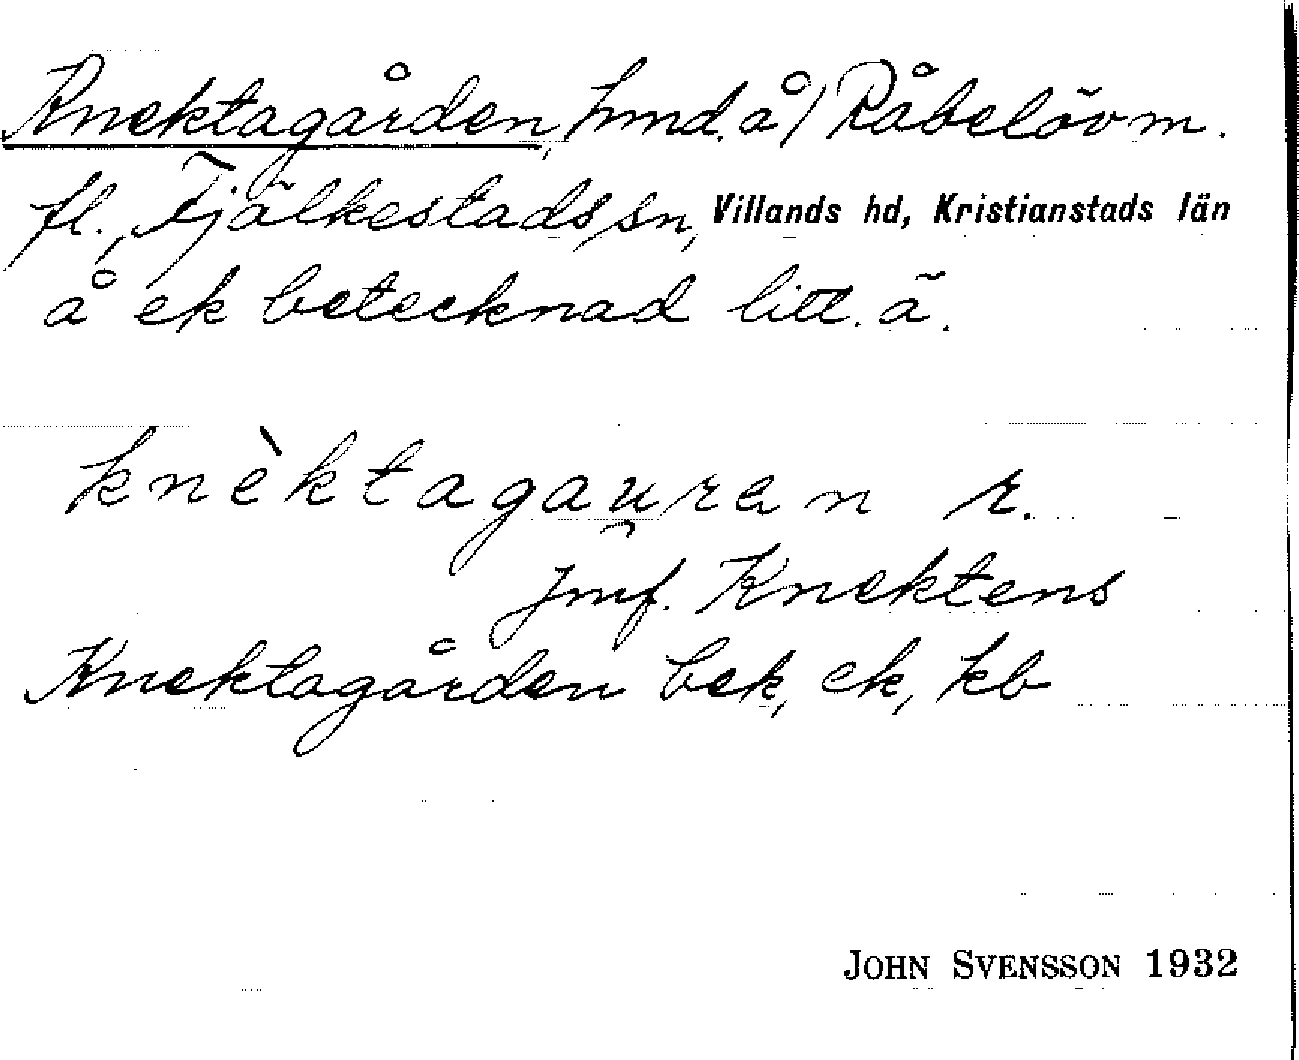 Knektagården, hmd. å) Råbelöv m.
fl., Fjälkestads sn, Villands hd, Kristianstads län
å ek betecknad litt. ä.
knèktagau̯ren r.
Jmf. Knektens
Knektagården bek, ek, kb
JOHN SVENSSON 1932